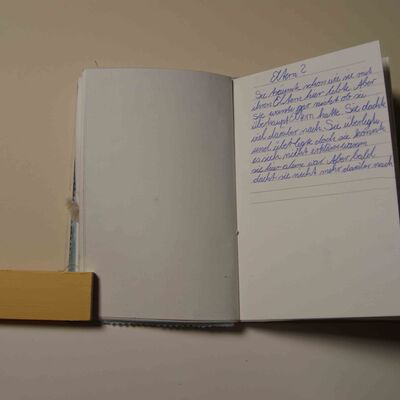 Eltern?
Sie träumte schon wie sie mit
ihren Eltern hier lebte. Aber
Sie wusste gar nicht ob sie
überhaupt Eltern hatte. Sie dachte
viel darüber nach. Sie überlegte
und überlegte doch sie konnte
es sich nicht erklären warum
sie hier alleine war. Aber bald
dacht sie nicht mehr darüber nach